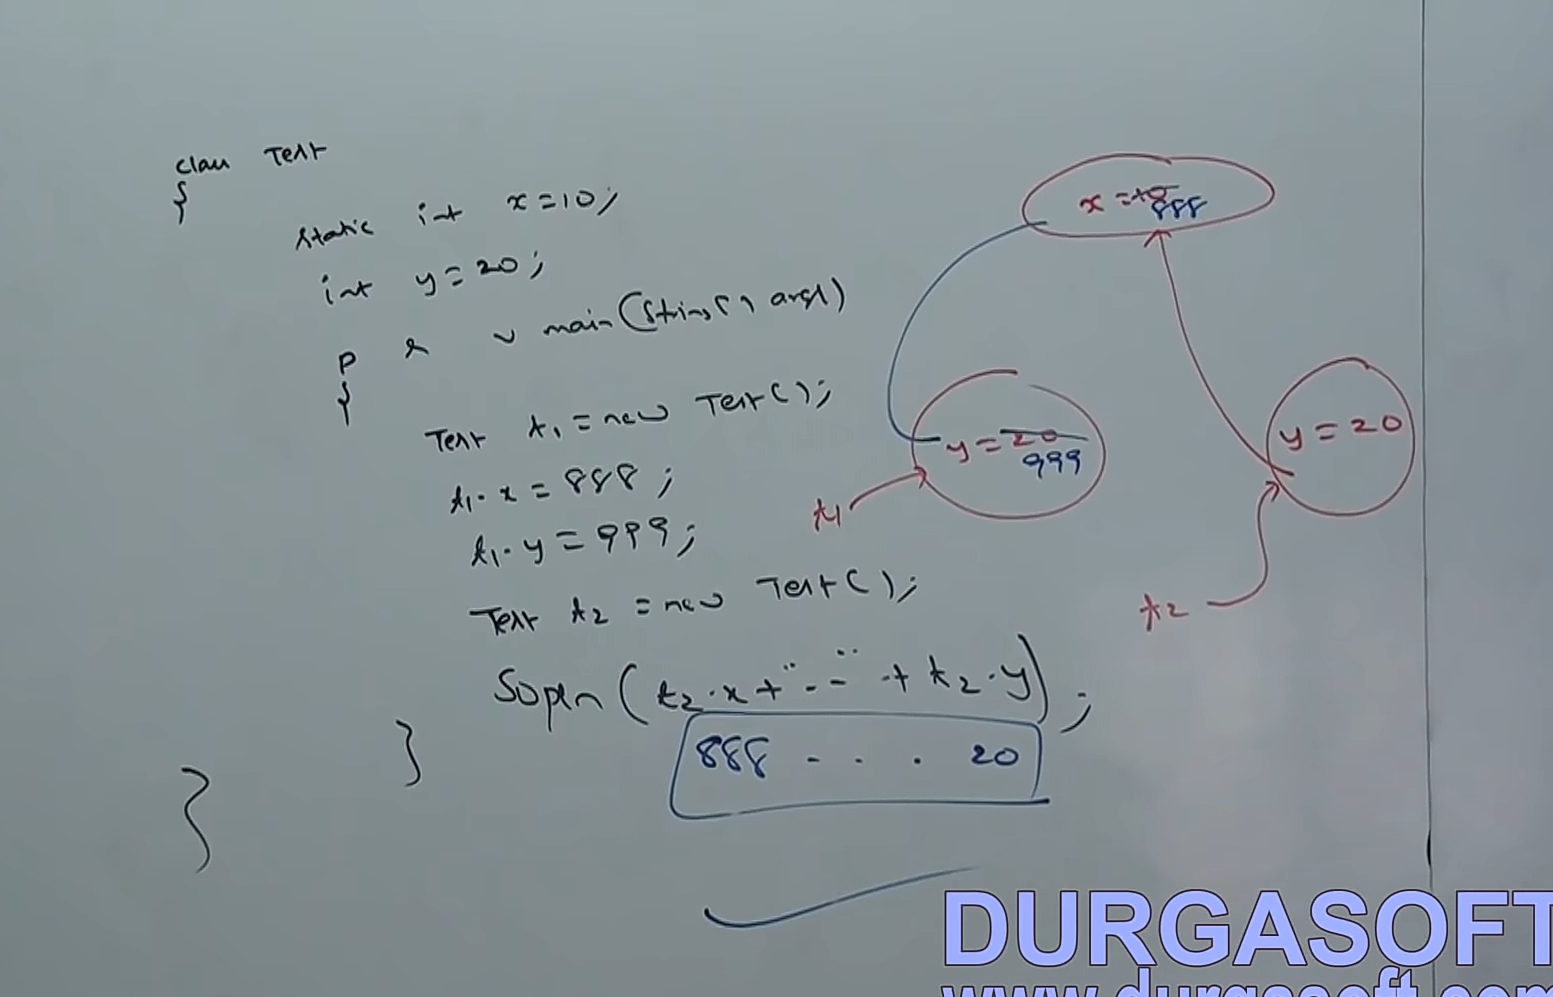 class Test
{
static int x=10;
int y=20;
p s v main(String[] args)
{
Test t1=new Test();
t1.x=888;
t1.y=999;
Test t2=new Test();
Sopln(t2.x+"--"+t2.y);
888 - . . 20
}
}
x=10
888
y=20
999
t1
y=20
t2
DURGASOFT
www.durgasoft.com